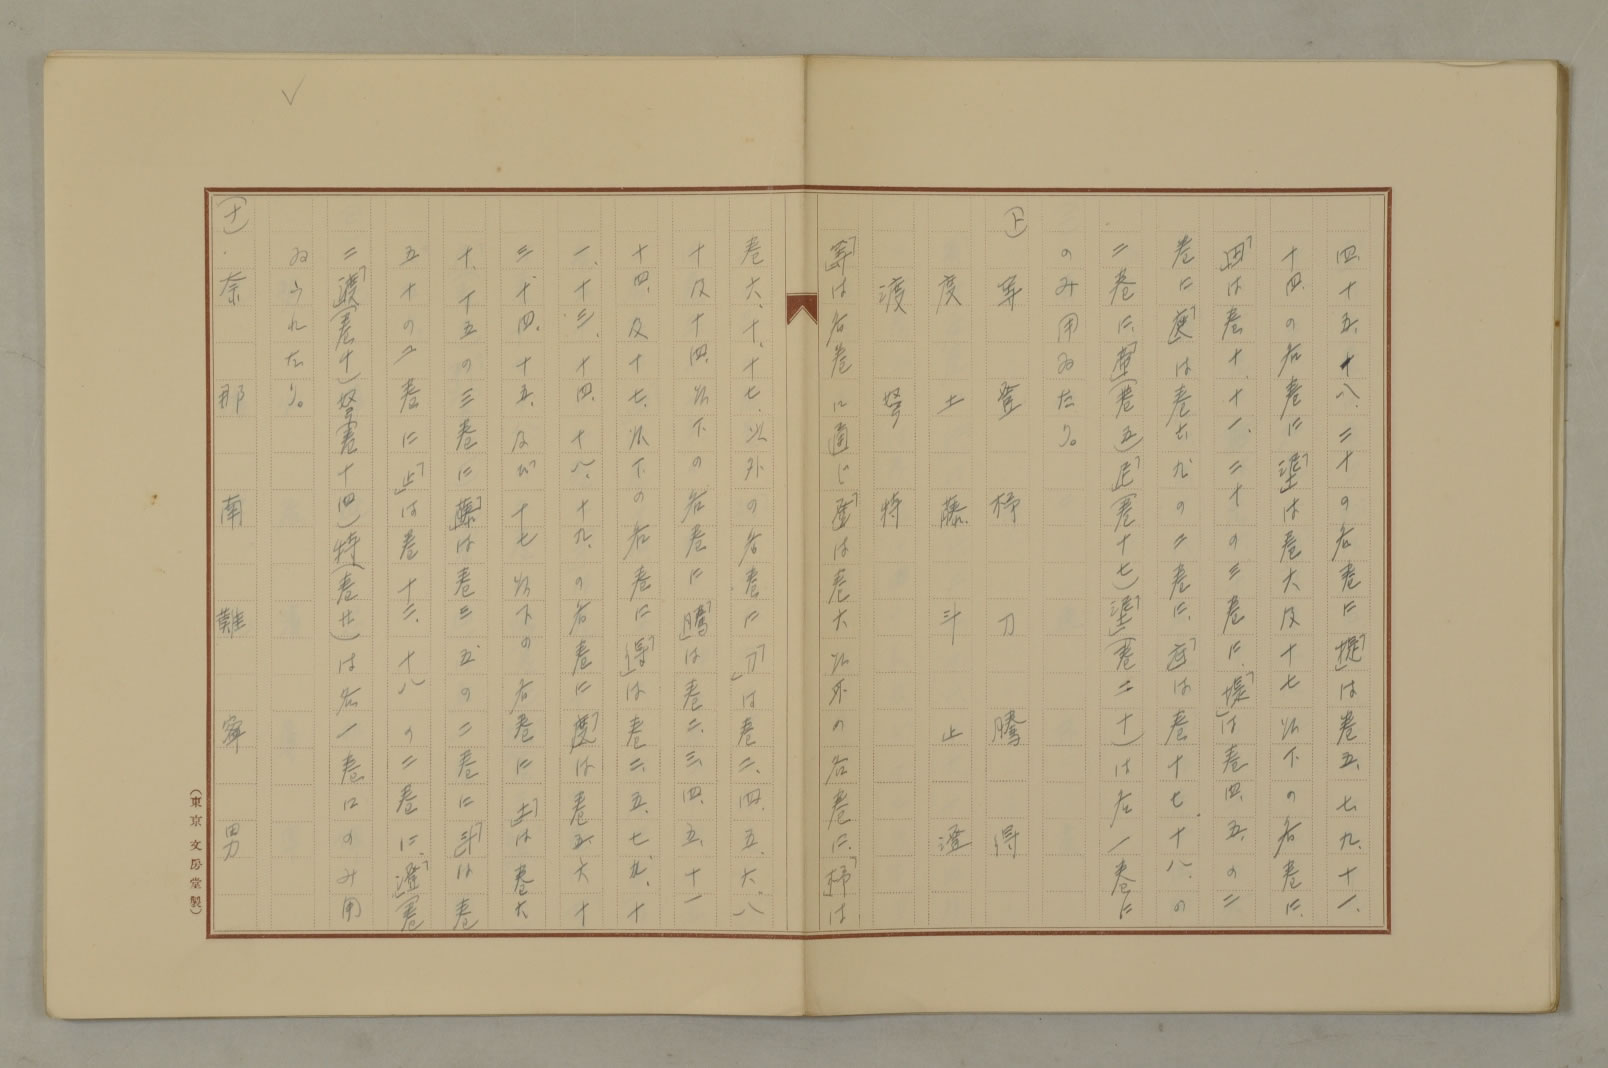 四、十五、十八、二十の各巻に「堤」は巻五、七、九、十一、
十四、の各巻に「涅」は巻六及十七以下の各巻に、
「田」は巻十、十一、二十の三巻に、「堤」は巻四、五、の二
巻に「庭」は巻七九の二巻に、「」は巻十七、十八、の
二巻に、「」(巻五)「」(巻十七)「」(巻二十)は各一巻に
のみ用ゐたり。
(ト) 等 登 杼 刀 騰 得
度 土 藤 斗 止 澄
渡 弩 特
「等」は各巻に通じ「登」は巻六以外の各巻に、「杼」は
巻六、十、十七、以外の各巻に「刀」は巻二、四、五、六、八
十及十四、以下の各巻に「騰」は巻二、三、四、五、十一
十四、及十七、以下の各巻に「得」は巻二、五、七、九、十
一、十三、十四、十八、十九、の各巻に「度」は巻五、六、十
三、十四、十五、及び十七以下の各巻に「土」は巻六
十、十五の三巻に「藤」は巻三五の二巻に「斗」は巻
五十の二巻に「止」は巻十二、十八の二巻に、「澄」(巻
二)「渡」(巻十)「弩」(巻十四)「特」(巻廿)は各一巻にのみ用
ゐられたり。
(ナ)・奈 那 南 難 寧 男
(東京文房堂製)